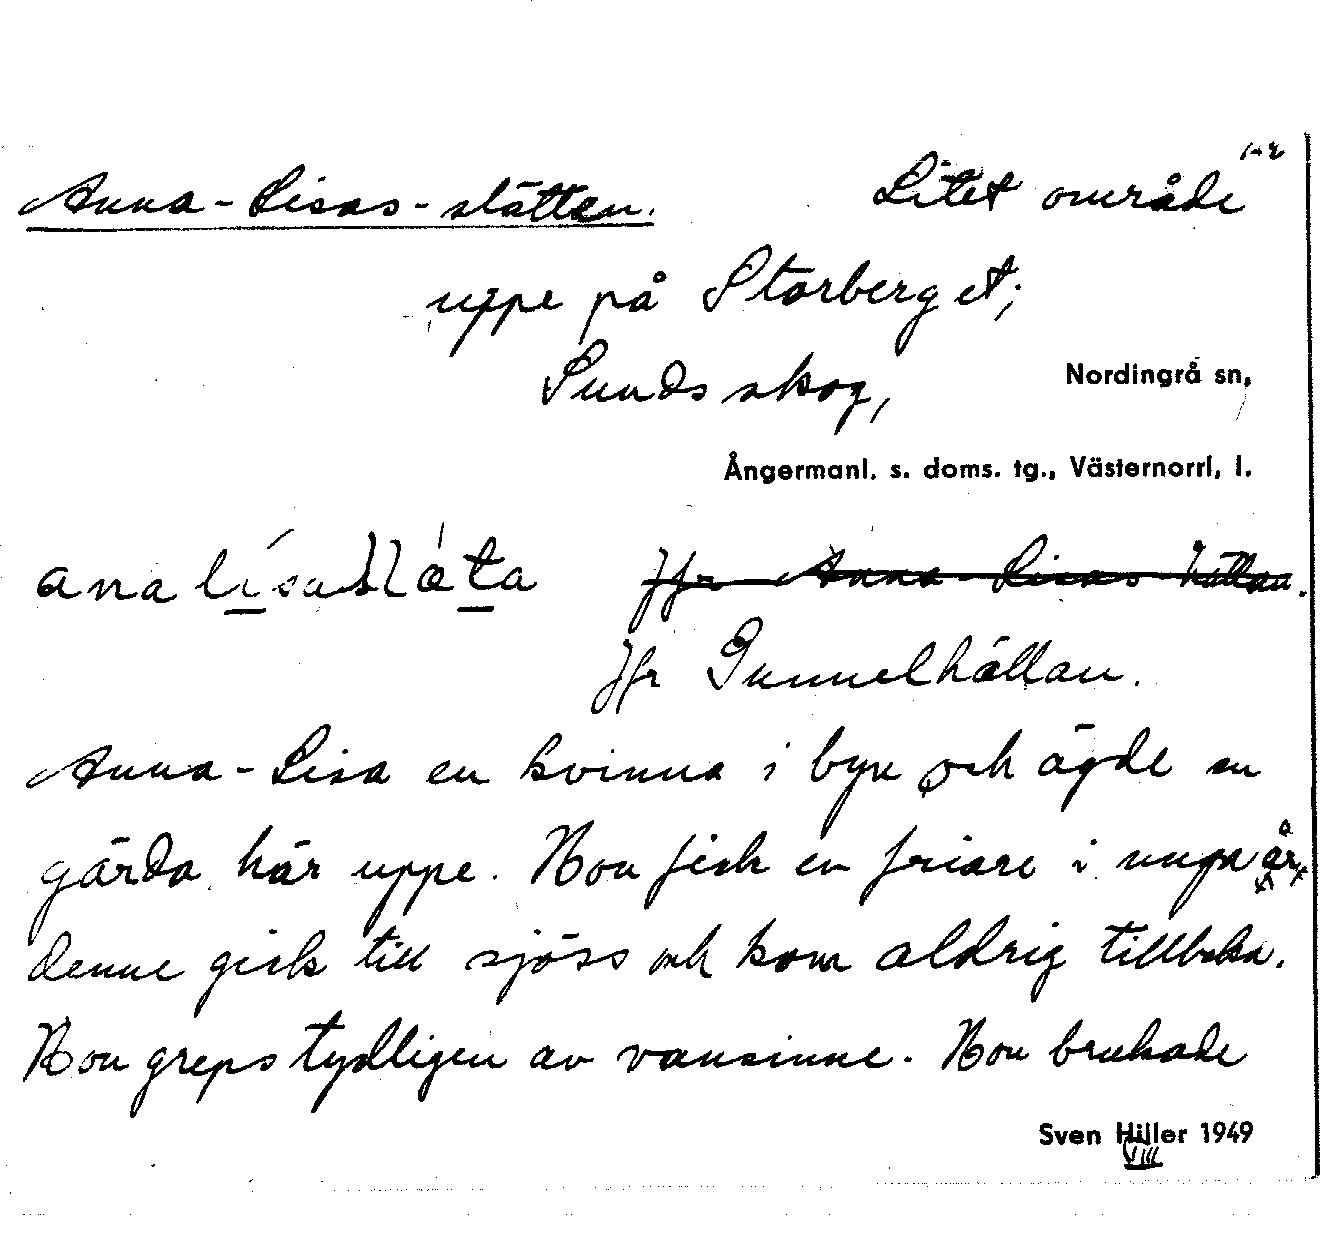 1-2
Anna-Lisas-slätten. Litet område
uppe på Storberget;
Sunds skog, Nordingrå sn,
Ångermanl. s. doms. tg., Västernorrl. l.
Jfr Anna-Lisas hällan.
Jfr Gunnelhällan.
Anna-Lisa en kvinna i byn och ägde en
gärda här uppe. Hon fick en friare i unga år,
denne gick till sjöss och kom aldrig tillbaka.
Hon greps tydligen av vansinne. Hon brukade
Sven Hiller 1949
VIII